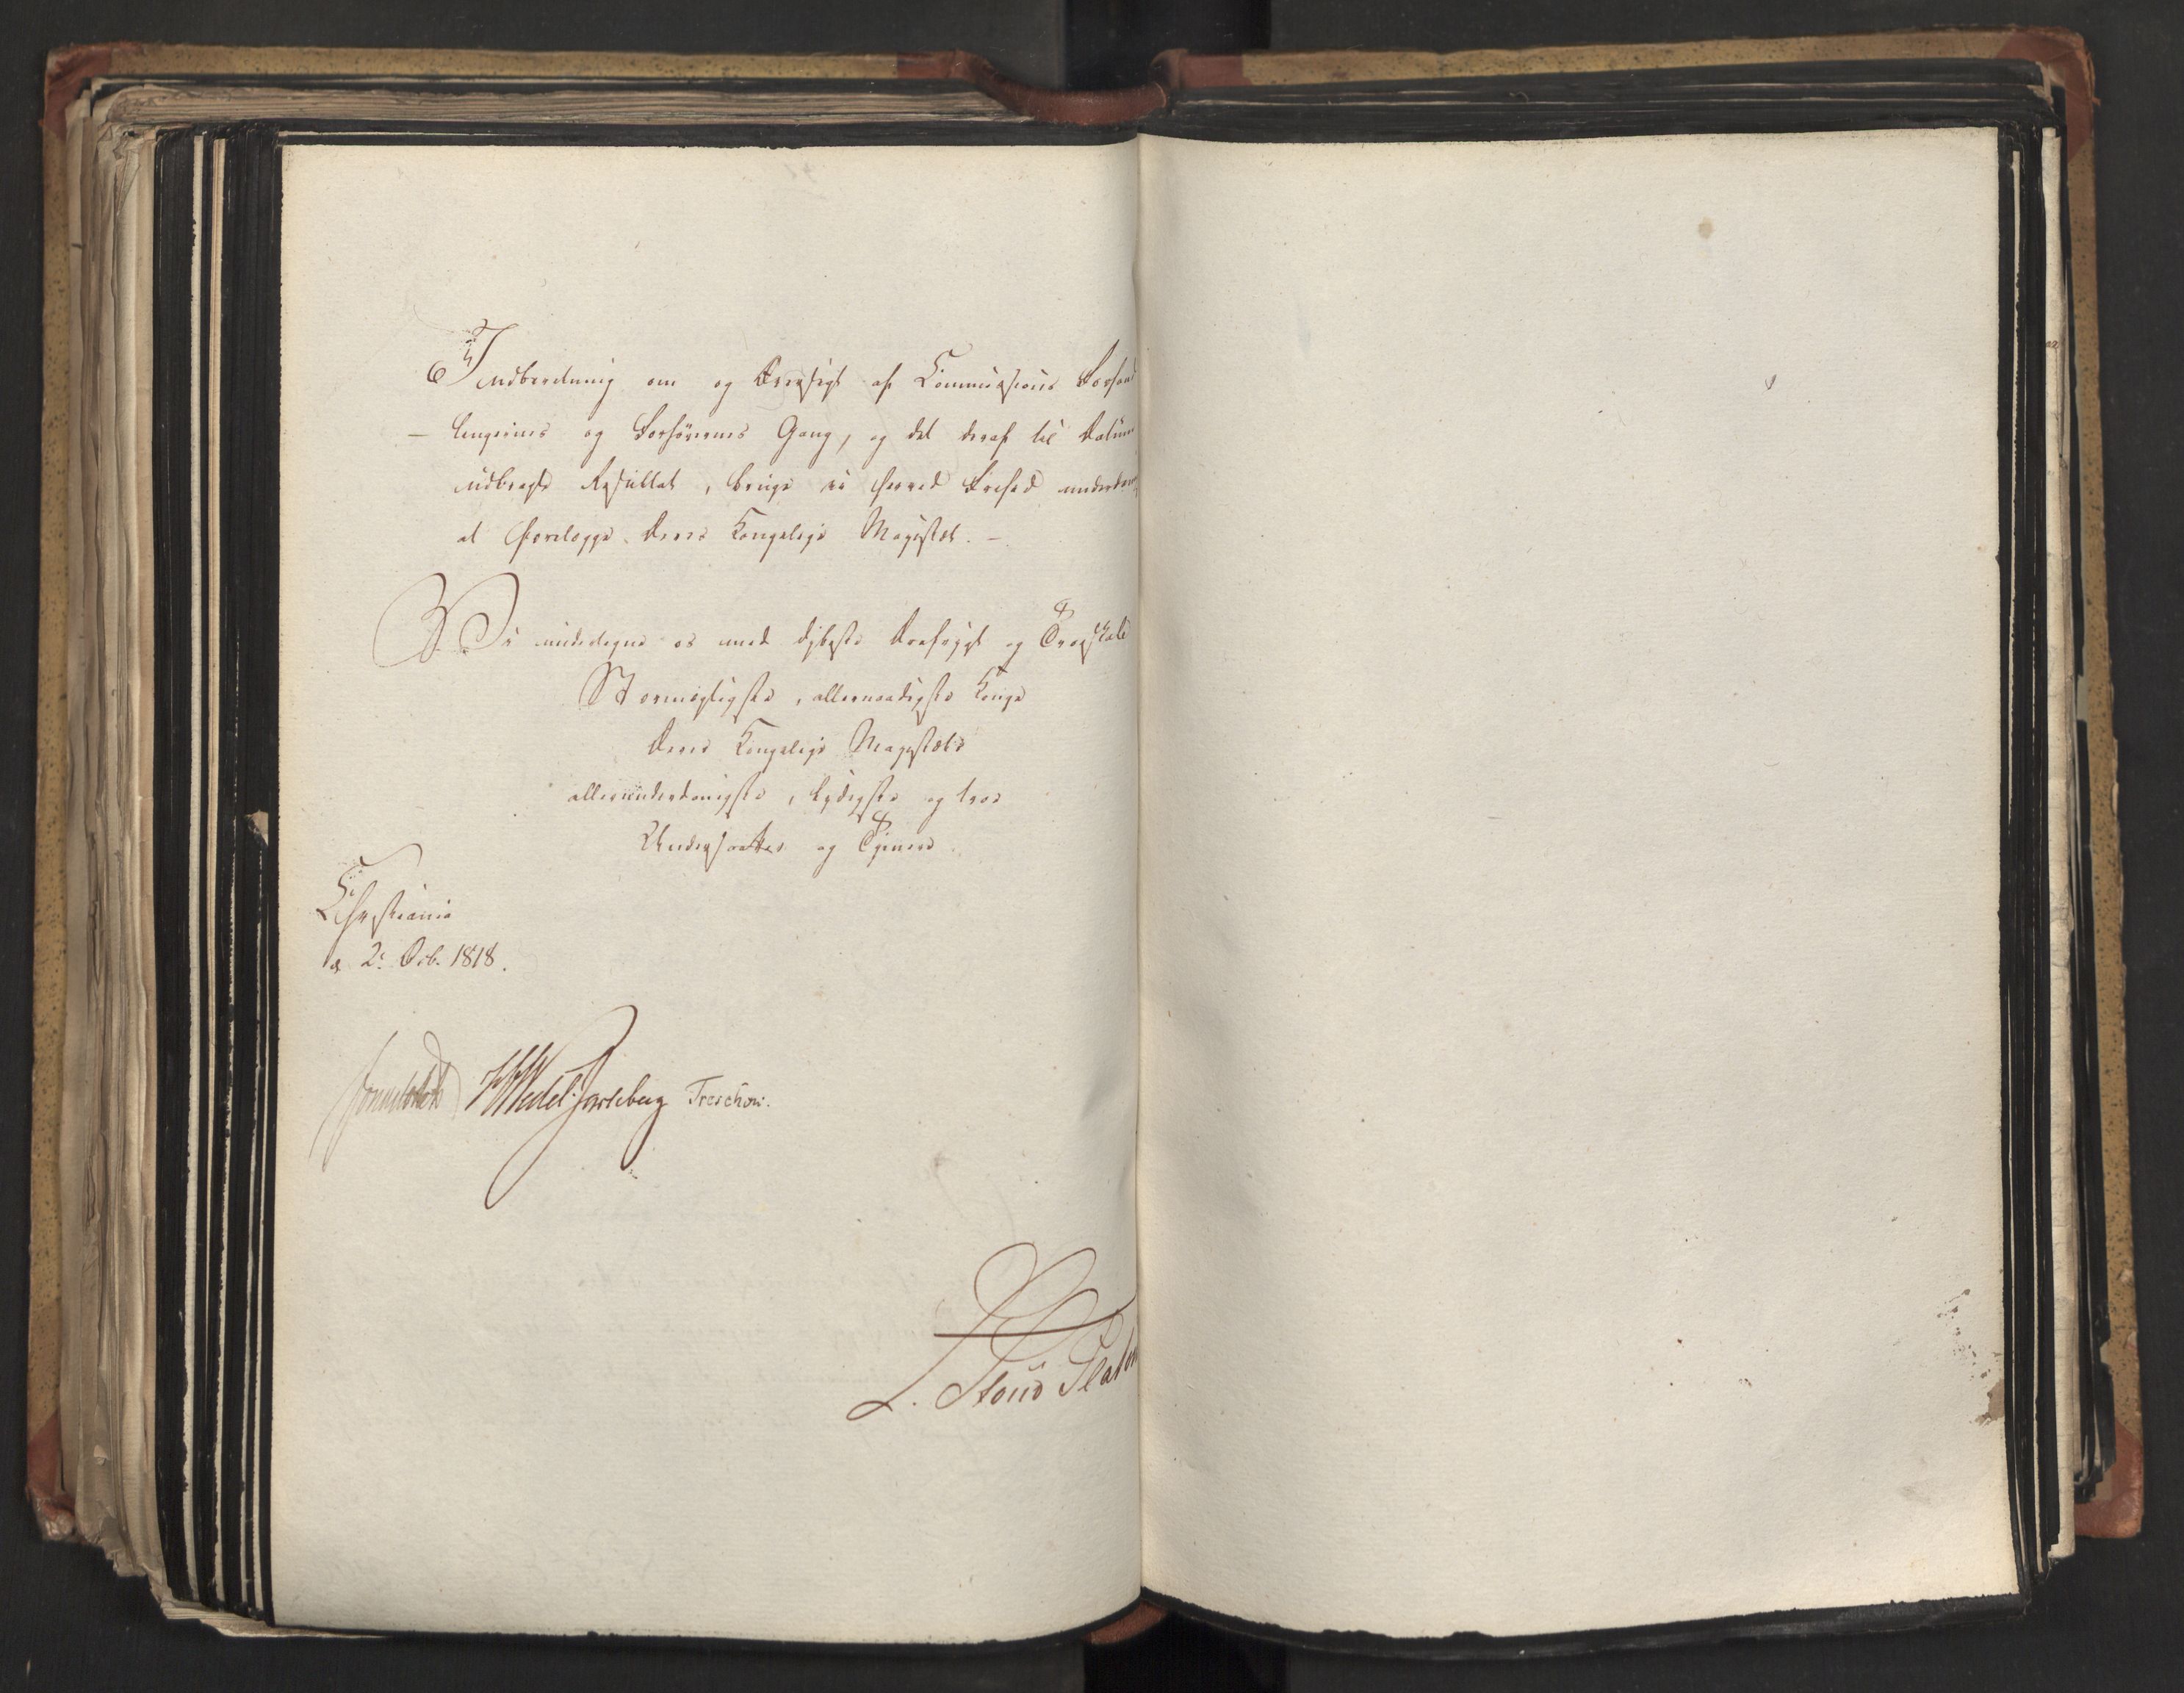 Indberetning om og Oversigt af Commissions Forhand
- lingernes og Forhørernes Gang, og det deraf til Datum
udbragte Resultat, bringe vi herved
at forelægge Deres Kongelige Majestæt. -
Vi undertegne os med dybeste Ærefrygt og Troeskab
Stormægtigste, allernaadigste Konge
Deres Kongelige Majestæts
allerunderdanigste, lydigste og troe
Undersaatter og Tjenere
Christiania
d. 2: Octb. 1818.
Sommerhielm HWedel Jarlsberg Treschow.
L. Stoud Platou